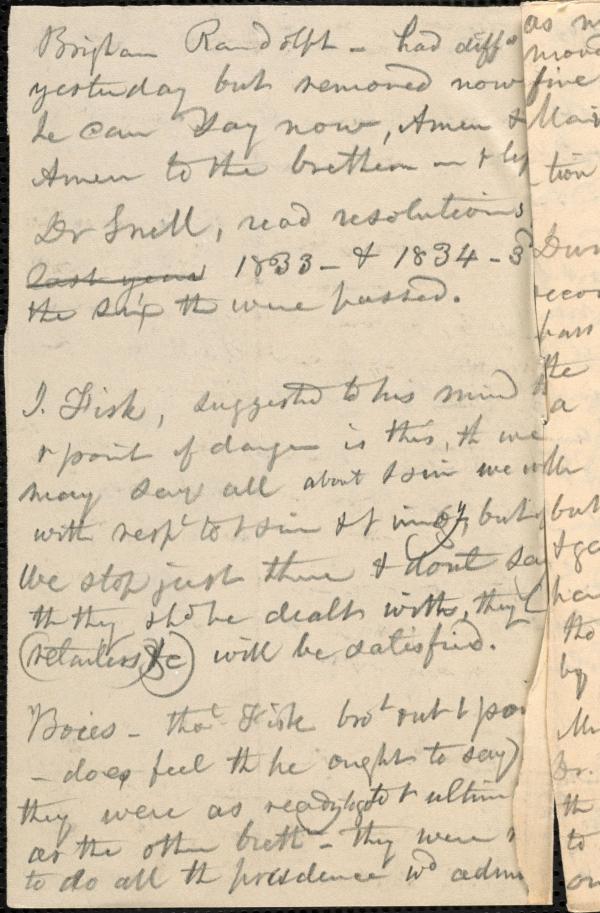 Brigham Randolph - had diffs
yesterday but removed now
he can say now, Amen &
Amen to the brethern
Dr Snell, read resolutions
last year 1833 - & 1834 - 3d
the six th were passed.
I. Fisk, suggested to his mind
r point of danger is this, th we
may say all about t sin we will
with respt to t sin & t but if
We stop just there & dont say
th they shd be dealt with, they (
retailers &c) will be satisfied.
Boies - thot Fisk brot out t poi
- does feel th he ought to say
they were as ready to go to t ultim
as the other breth - they were
to do all th providence wd adm
as
move
five
Mai
tion
Dun
recor
pass
the
a
but
& ge
ha
tho
by
Mr
Dr.
th
to
on